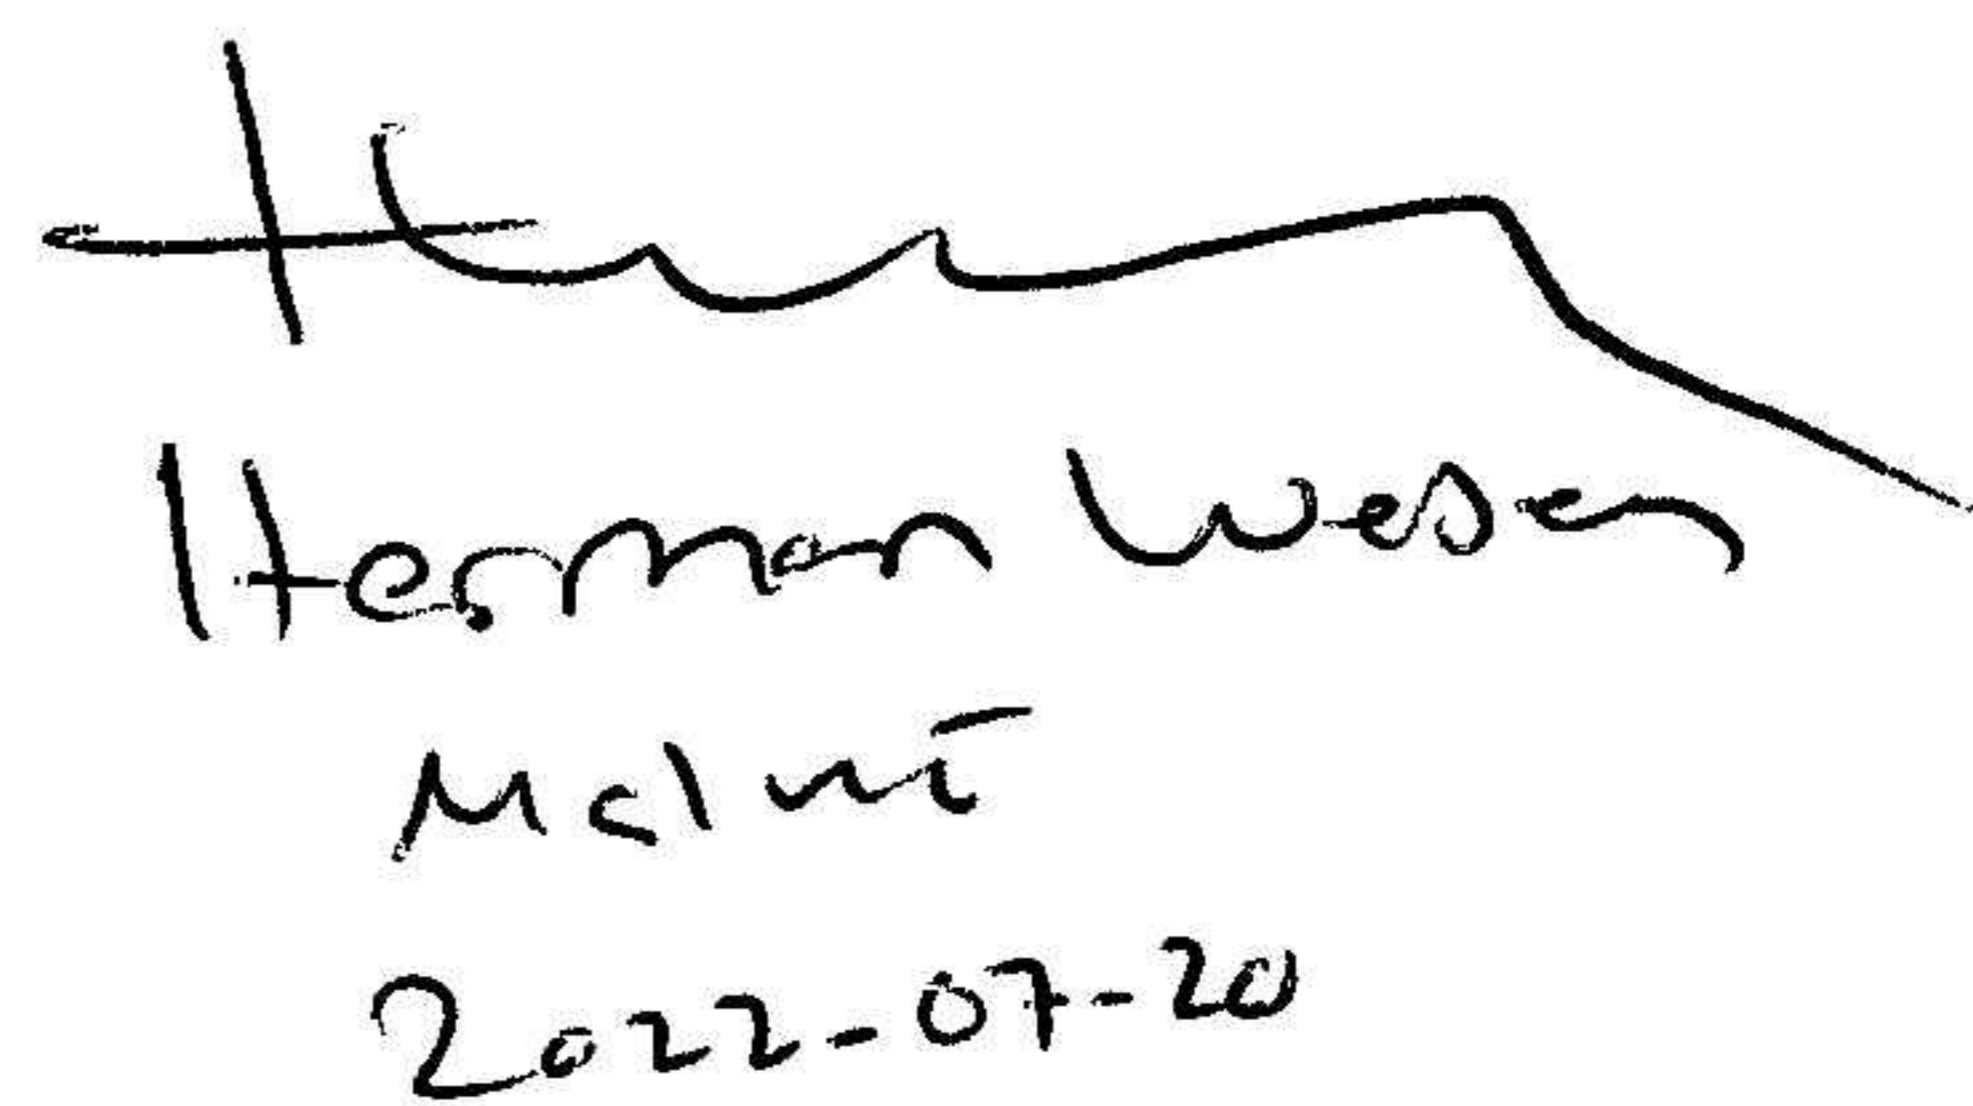 Herman Wesen
Malmö
2022-07-20